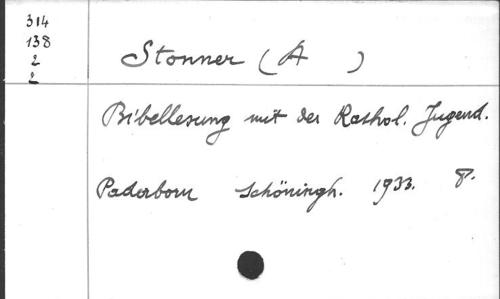 314
138
2
2
Stonner (A )
Bibellesung mit der Kathol. Jugend.
Paderborn Schöningh. 1933. 8°.